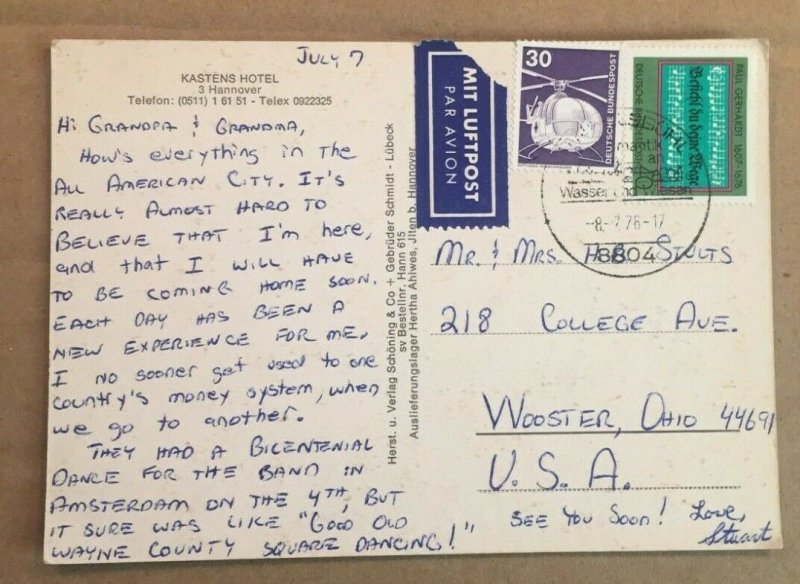 July 7
KASTENS HOTEL
3 Hannover
Telefon: (0511) 1 61 51 - Telex 0922325
Hi Grandpa & Grandma,
How's everything in the
All American City. It's
really almost hard to
believe that I'm here,
and that I will have
to be coming home soon.
Each day has been a
new experience for me.
I no sooner get used to one
country's money system, when
we go to another.
They had a Bicentenial
Dance for the band in
Amsterdam on the 4th, but
it sure was like "Good old
Wayne County Square Dancing!"
Herst. u. Verlag Schöning & Co + Gebrüder Schmidt - Lübeck
sv Bestellnr. Hann 615
Auslieferungslager Hertha Ahlwes, Jlten b. Hannover
MIT LUFTPOST
PAR AVION
30
DEUTSCHE BUNDESPOST
PAUL GERHARDT 1607-1676
Befiehl du deine Wege
DEUTSCHE BUNDESPOST
Wasser und
-8.-7.76-17
8804
Mr. & Mrs. H.B. Stults
218 College Ave.
Wooster, Ohio 44691
U.S.A.
See you soon! Love,
Stuart